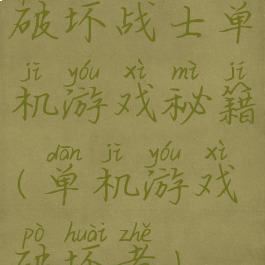 破坏战士单
jī yóu xì mì jí
机游戏秘籍
dān jī yóu xì
(单机游戏
pò huài zhě
破坏者)